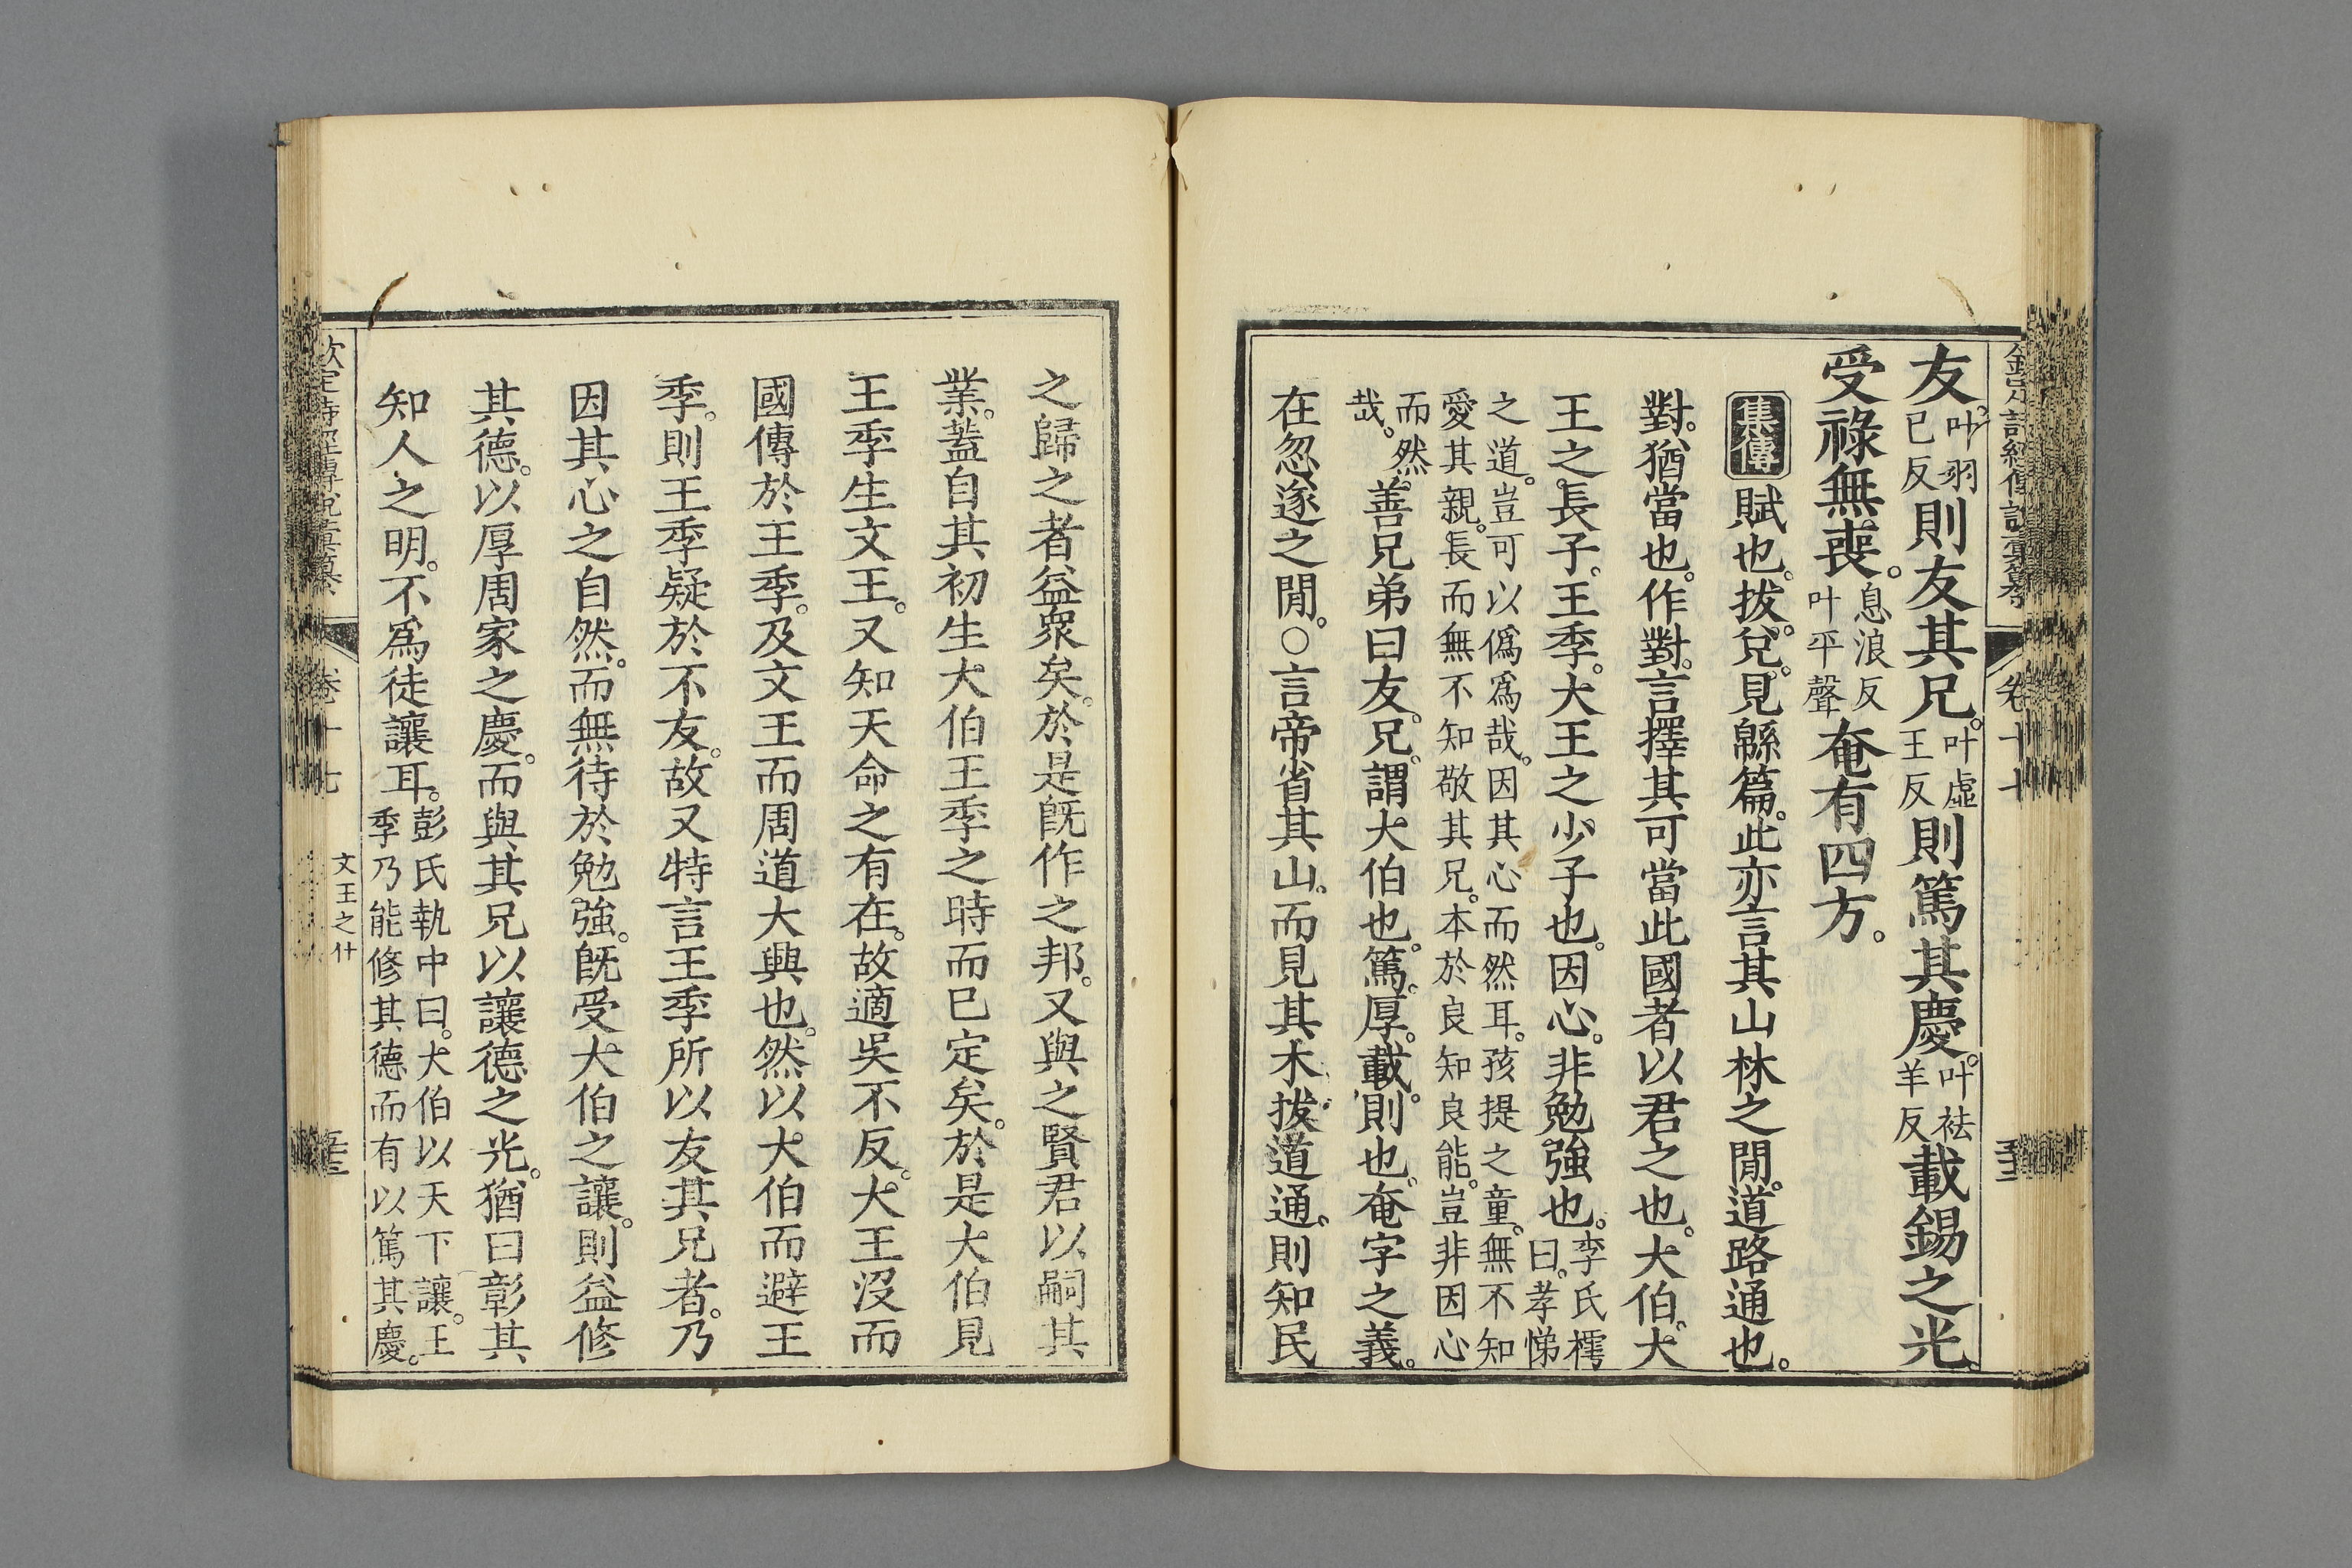 友。叶羽已反則友其兄。叶虛王反則篤其慶。叶袪羊反載錫之光。
受祿無喪。息浪反叶平聲奄有四方。
集傳 賦也。拔。兌。見緜篇。此亦言其山林之閒。道路通也。
對。猶當也。作對。言擇其可當此國者以君之也。大伯。大
王之長子。王季。大王之少子也。因心。非勉強也。李氏樗曰。孝悌
之道。豈可以僞爲哉。因其心而然耳。孩提之童。無不知
愛其親。長而無不知敬其兄。本於良知良能。豈非因心
而然哉。善兄弟曰友。兄。謂大伯也。篤。厚。載。則也。奄字之義。
在忽遂之閒。○言帝省其山。而見其木拔道通。則知民
之歸之者益眾矣。於是旣作之邦。又與之賢君以嗣其
業。蓋自其初生大伯王季之時而已定矣。於是大伯見
王季生文王。又知天命之有在。故適吳不反。大王沒而
國傳於王季。及文王而周道大興也。然以大伯而避王
季。則王季疑於不友。故又特言王季所以友其兄者。乃
因其心之自然。而無待於勉強。旣受大伯之讓。則益修
其德。以厚周家之慶。而與其兄以讓德之光。猶曰彰其
知人之明。不爲徒讓耳。彭氏執中曰。大伯以天下讓。王季乃能修其德而有以篤其慶。
卷十七
文王之什